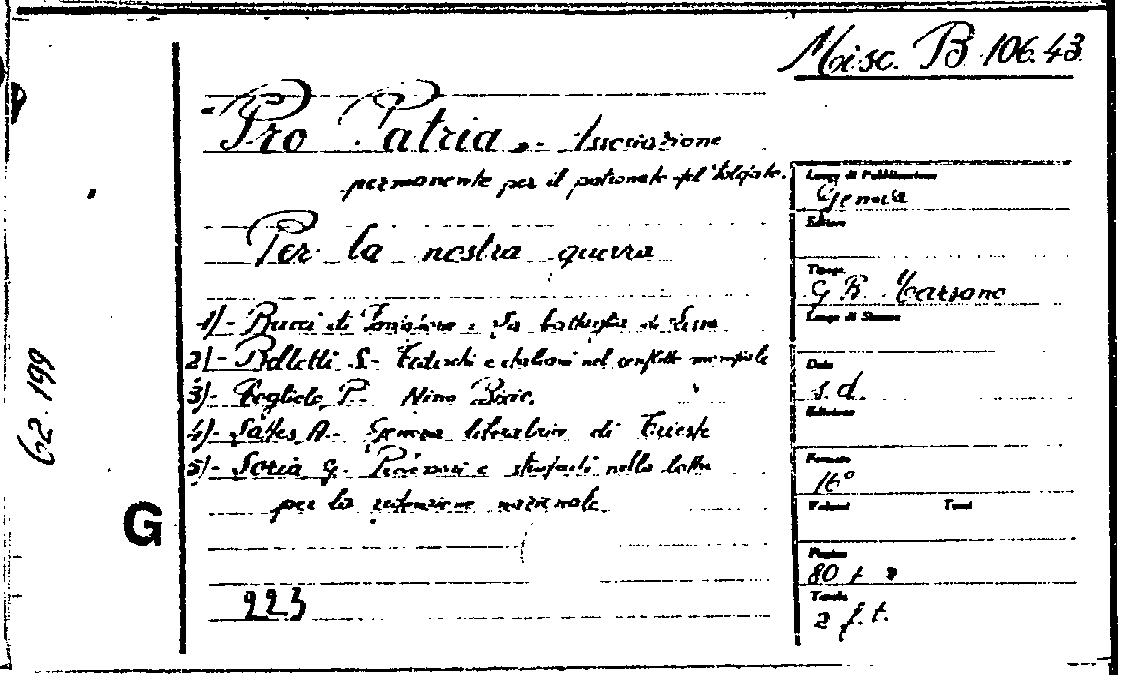 Misc. B. 106.43
Pro Patria. - Associazione
permanente per il patronato del Soldato.
Per la nostra guerra
1)- Bucci di : La battaglia di Lissa
2)- Belletti S.- Tedeschi e italiani nel conflitto mondiale
3)- Foglieto P.- Nino Bixio.
4)- Sattes A.- Genova di Trieste
5)- Soria G. e nella lotta
per la redenzione nazionale.
223
62.199
G
Luogo di Pubblicazione
Genova
Editore
Tipogr.
G. B. Marsano
Luogo di Stampa
Data
s.d.
Edizione
Formato
16°
Volumi Tomi
Pagine
80 +
Tavole
2 f.t.